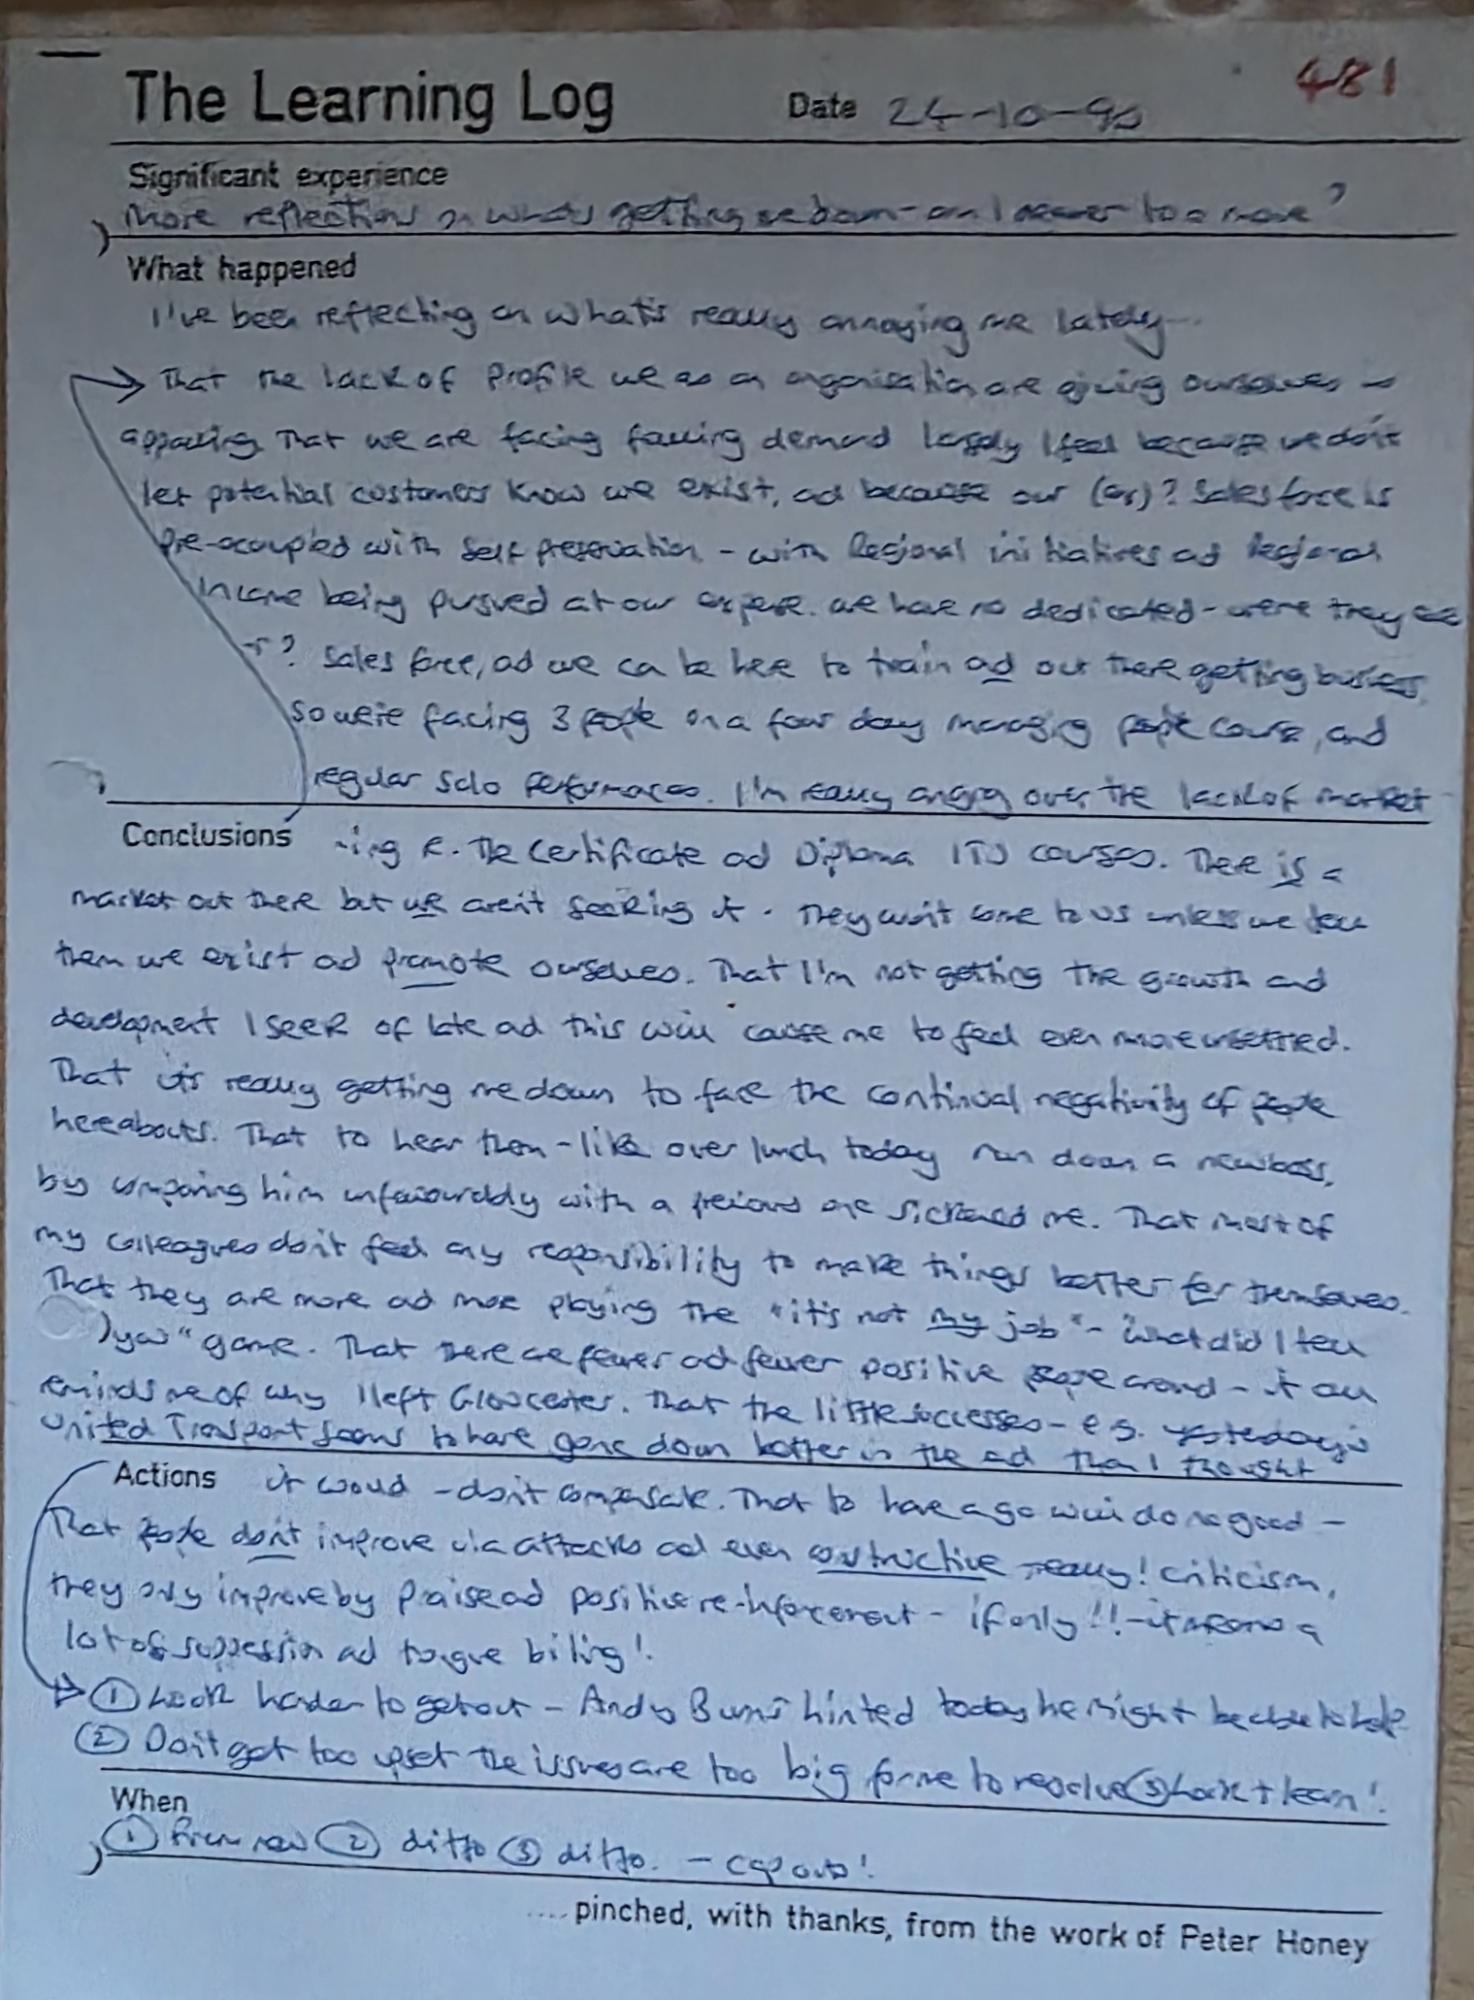 The Learning Log Date 24-10-90 481
Significant experience
More reflections on what's getting me down - am I nearer to a move?
What happened
I've been reflecting on what's really annoying me lately...
That the lack of profile we as an organisation are giving ourselves is
appalling. That we are facing falling demand largely I feel because we don't
let potential customers know we exist, ad because our (or)? Sales force is
pre-occupied with self preservation - with Regional initiatives ad Regional
Income being pursued at our expense. We have no dedicated - were they
? Sales force, ad we can be here to train ad out there getting business,
so we're facing 3 people on a four day managing people course, and
regular solo performances. I'm really angry over the lack of market
Conclusions -ing re. The Certificate ad Diploma ITD courses. There is a
market out there but we aren't seeking it. They won't come to us unless we tell
them we exist ad promote ourselves. That I'm not getting the growth and
development I seek of late ad this will cause me to feel even more unsettled.
That it's really getting me down to face the continual negativity of people
hereabouts. That to hear them - like over lunch today run down a new boss,
by comparing him unfavourably with a previous one sickened me. That most of
my colleagues don't feel any responsibility to make things better for themselves.
That they are more ad more playing the "it's not my job" - "what did I tell
you" game. That there are fewer ad fewer positive people around - it all
reminds me of why I left Gloucester. That the little successes - e.g. yesterday's
United Transport seems to have gone down better in the end than I thought
Actions it would - don't compensate. That to have a go will do no good -
That people don't improve via attacks ad even constructive really! criticism,
they only improve by praise ad positive re-inforcement - if only!! - it means a
lot of suppression ad tongue biting!
① Look harder to get out - Andy Burns hinted today he might be able to help
② Don't get too upset the issues are too big for me to resolve ③ Look + learn!
When
① From now ② ditto ③ ditto. - cop outs!
.... pinched, with thanks, from the work of Peter Honey